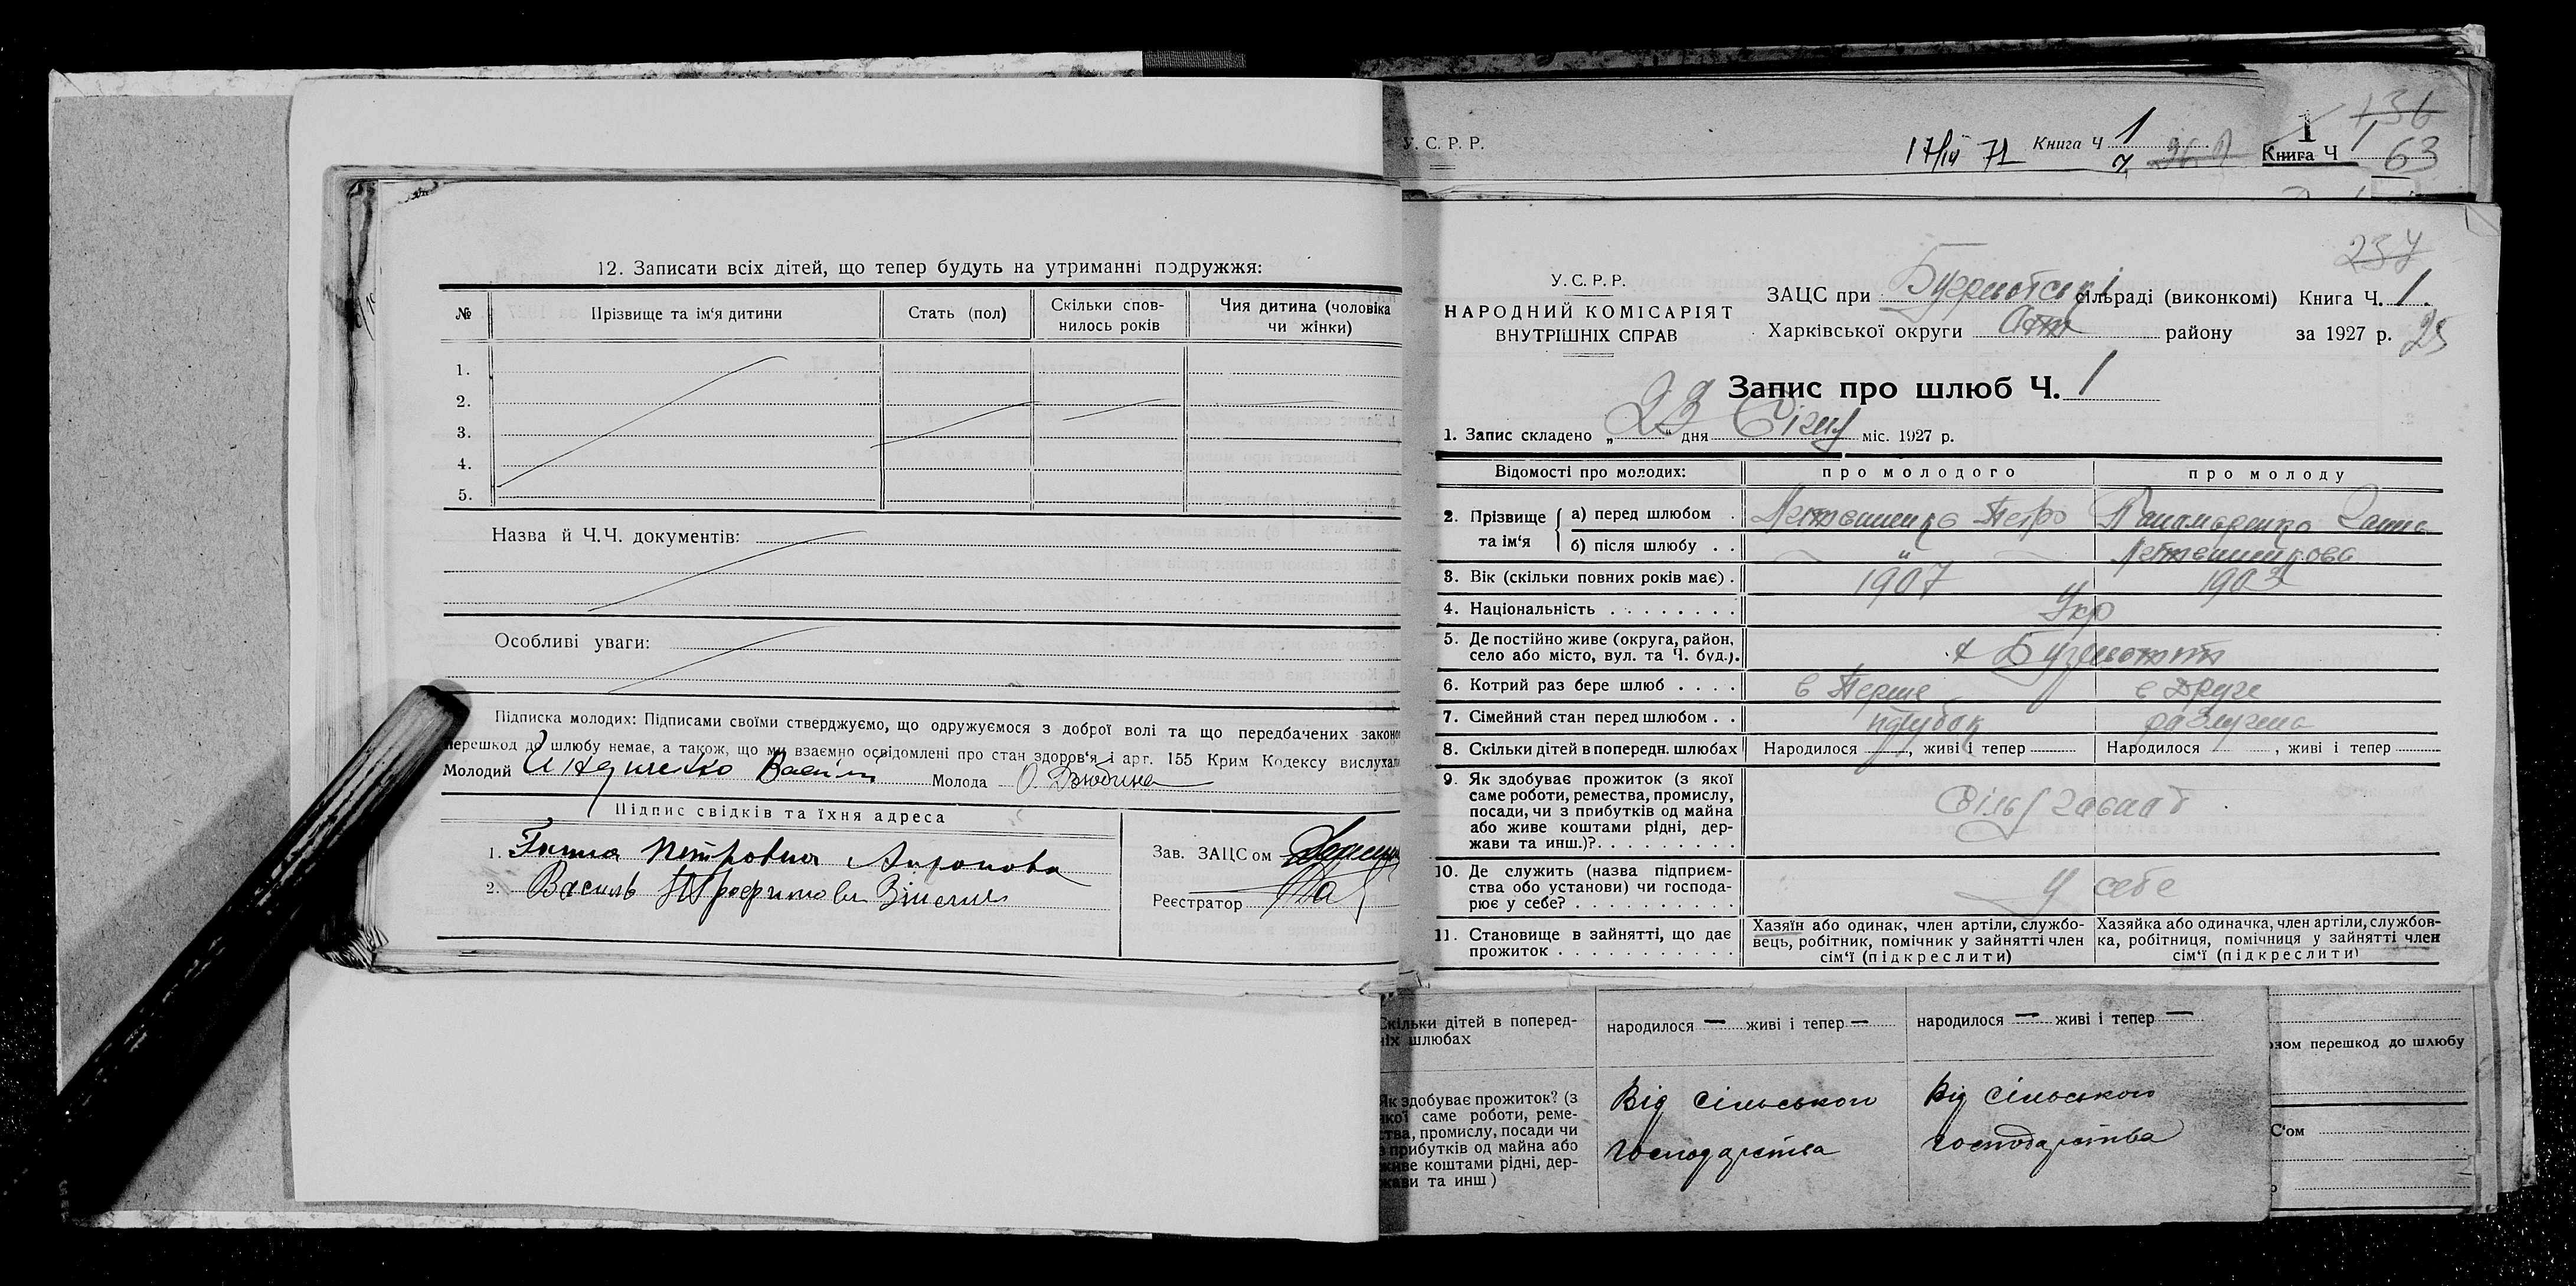 12. Записати всіх дітей, що тепер будуть на утриманні подружжя:
№ Прізвище та ім'я дитини Стать (пол) Скільки спов- Чия дитина (чоловіка
нилось років чи жінки)
1.
2.
3.
4.
5.
Назва й Ч.Ч. документів:
Особливі уваги:
Підписка молодих: Підписами своїми стверджуємо, що одружуємося з доброї волі та що передбачених законо
перешкод до шлюбу немає, а також, що ми взаємно освідомлені про стан здоров'я і арт. 155 Крим Кодексу вислухал
Молодий Василь Молода
Підпис свідків та їхня адреса
1. Ганна Петровна
2. Василь
Зав. ЗАЦСом
Реєстратор
У. С. Р. Р. 17/IV 71 Книга Ч 1 1 136
Книга Ч 1 63
237
У. С. Р. Р.
НАРОДНИЙ КОМІСАРІЯТ
ВНУТРІШНІХ СПРАВ
ЗАЦС при сільраді (виконкомі) Книга Ч. 1.
Харківської округи району за 1927 р. 25
Запис про шлюб Ч. 1
1. Запис складено „23" дня Січня міс. 1927 р.
Відомості про молодих: про молодого про молоду
2. Прізвище та ім'я а) перед шлюбом . Петро
б) після шлюбу . . "
3. Вік (скільки повних років має) . 1907 1903
4. Національність . . . . . . . . Укр
5. Де постійно живе (округа, район,
село або місто, вул. та Ч. буд.).
6. Котрий раз бере шлюб . . . . в Перше в Друге
7. Сімейний стан перед шлюбом . . парубок разлучена
8. Скільки дітей в попередн. шлюбах Народилося , живі і тепер Народилося , живі і тепер
9. Як здобуває прожиток (з якої
саме роботи, ремества, промислу,
посади, чи з прибутків од майна
або живе коштами рідні, дер-
жави та инш.)?. . . . . . . . .
10. Де служить (назва підприєм-
ства обо установи) чи господа-
рює у себе? . . . . . . . . . . у себе
11. Становище в зайнятті, що дає
прожиток . . . . . . . . . . .
Хазяїн або одинак, член артіли, службо-
вець, робітник, помічник у зайнятті член
сім'ї (підкреслити)
Хазяйка або одиначка, член артіли, службов-
ка, робітниця, помічниця у зайнятті член
сім'ї (підкреслити)
Скільки дітей в поперед-
ніх шлюбах
народилося — живі і тепер — народилося — живі і тепер —
Як здобуває прожиток? (з
якої саме роботи, реме-
ства, промислу, посади чи
з прибутків од майна або
живе коштами рідні, дер-
жави та инш)
Від сільського
господарства
Від сільського
господарства
зном перешкод до шлюбу
С'ом